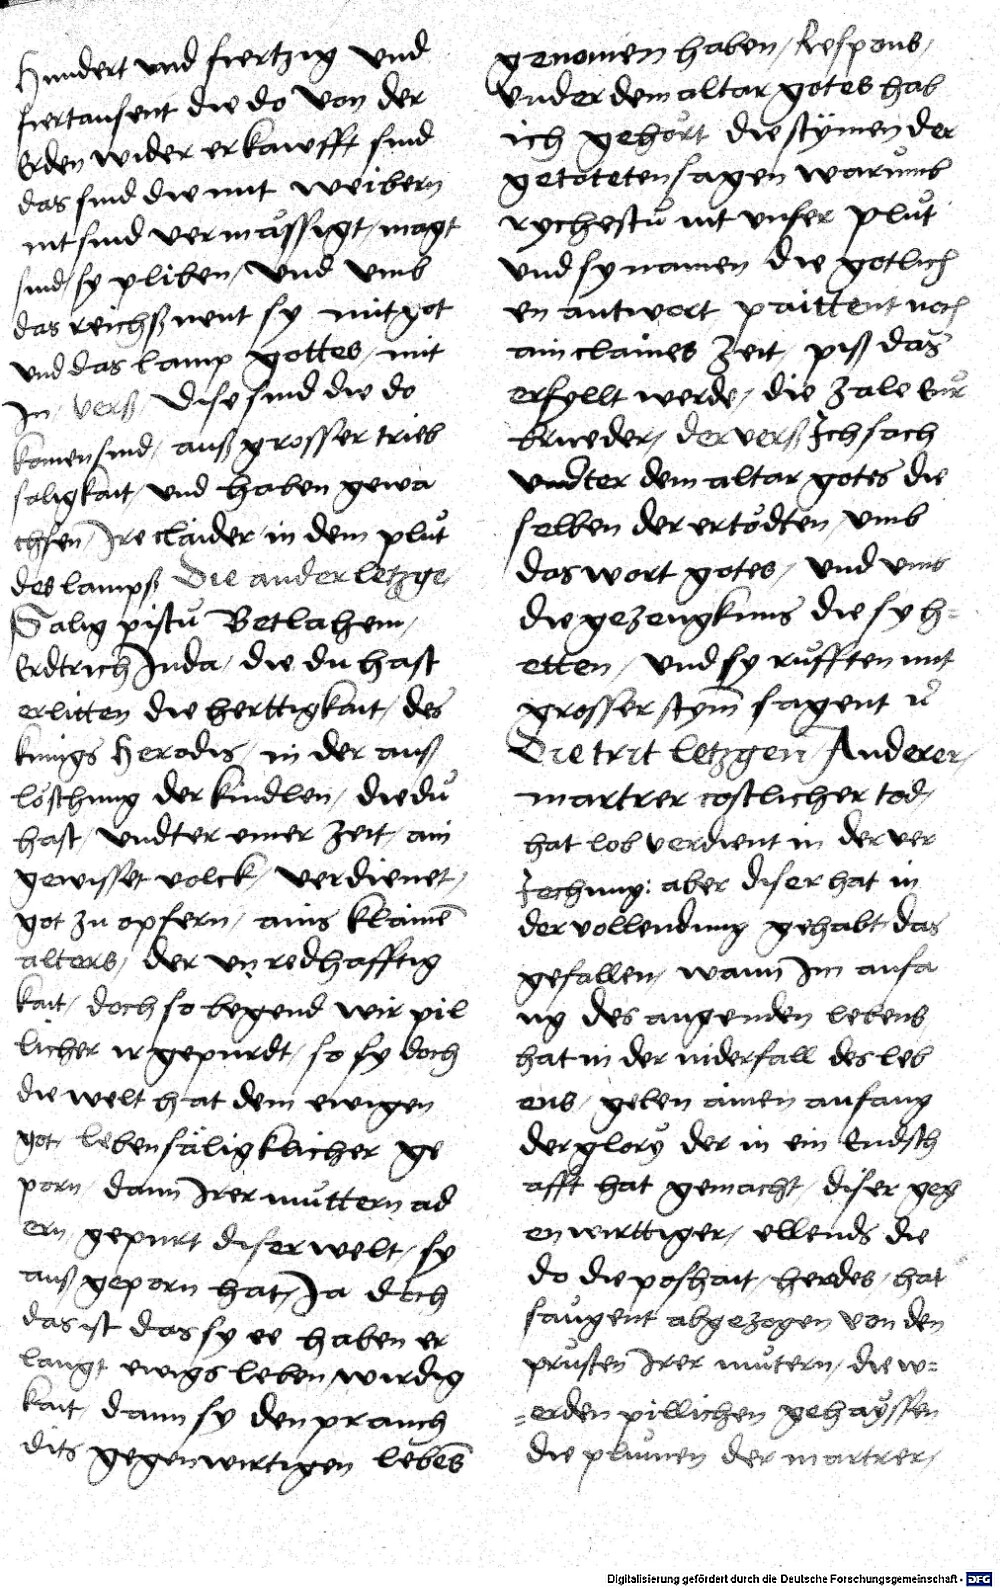 Hundert und fiertzig und
fiertausent die do von der
Erden wider erkawfft sind
das sind die mit weibern
nit sind vermaͦssigt / magt
sind / sy pliben / und umb
das reichß nent sy mit got
und das lamp gottes / mit
In / verß / dise sind die do
komen sind / auß grosser trieb
saligkait / und haben gewa
chsen / Ire claider in dem pluͦt
des lampß Die ander letzge /
Salig pistuͦ Betlahem /
Erdtrich Juda / die du hast
erlitten die herttigkait / des
kunigs Herodis / in der auß
loͤschung der kindlen / die duͦ
hast / undter einer zeit / ain
gewisset volck / verdienet /
got zu opfern / ains klainē
alters / der unredhafftig
kait / doch so begend wir pil
licher ir gepurdt / so sy doch
die welt hat dem ewigen
got lebensäligklicher ge
porn / dann Irer muͦttern ad
ern / gepurt diser welt / sy
auß geporn hat / Ja doch
das ist das sy ee haben er
langt ewigs leben / wirdig
kait / dann sy den prauch
dits gegenwirtigen lebēs
genomen haben / Respons /
Under dem altar gotes hab
ich gehoͤrt die stymen der
getoteten sagen warumb
rychestuͦ nit unser pluͦt
und sy namen die gotlich
en antwort paittent noch
ain claines zeit / piß das
erfyllt werde / die zale Eur
brueder / der verß Ich sach
undter dem altar gotes die
selben der ertoͤdten / umb
das wort gotes / und umb
die gezeugknus die sy h=
etten / und sy ruͦfften mit
grosser stym̄ sagent uͦ
Die trit letzgen / Anderer /
martrer costlicher tod /
hat lob verdient in der ver
Jechung: aber diser hat in
der vollendung gehabt das
gefallen / wann Im anfa
ng des angenden lebens
hat in der niderfall des leb
ens / geben ainen anfang
der glory der in ein Endsch
afft hat gemacht / diser geg
enwirttiger / ellends die
do die poshait / herdes / hat
saugent abgezogen von den
prusten Irer muͦtern / die w=
=erden pillichen gehaÿssen
die pluͦmen der martrer /
Digitalisierung gefördert durch die Deutsche Forschungsgemeinschaft - DFG